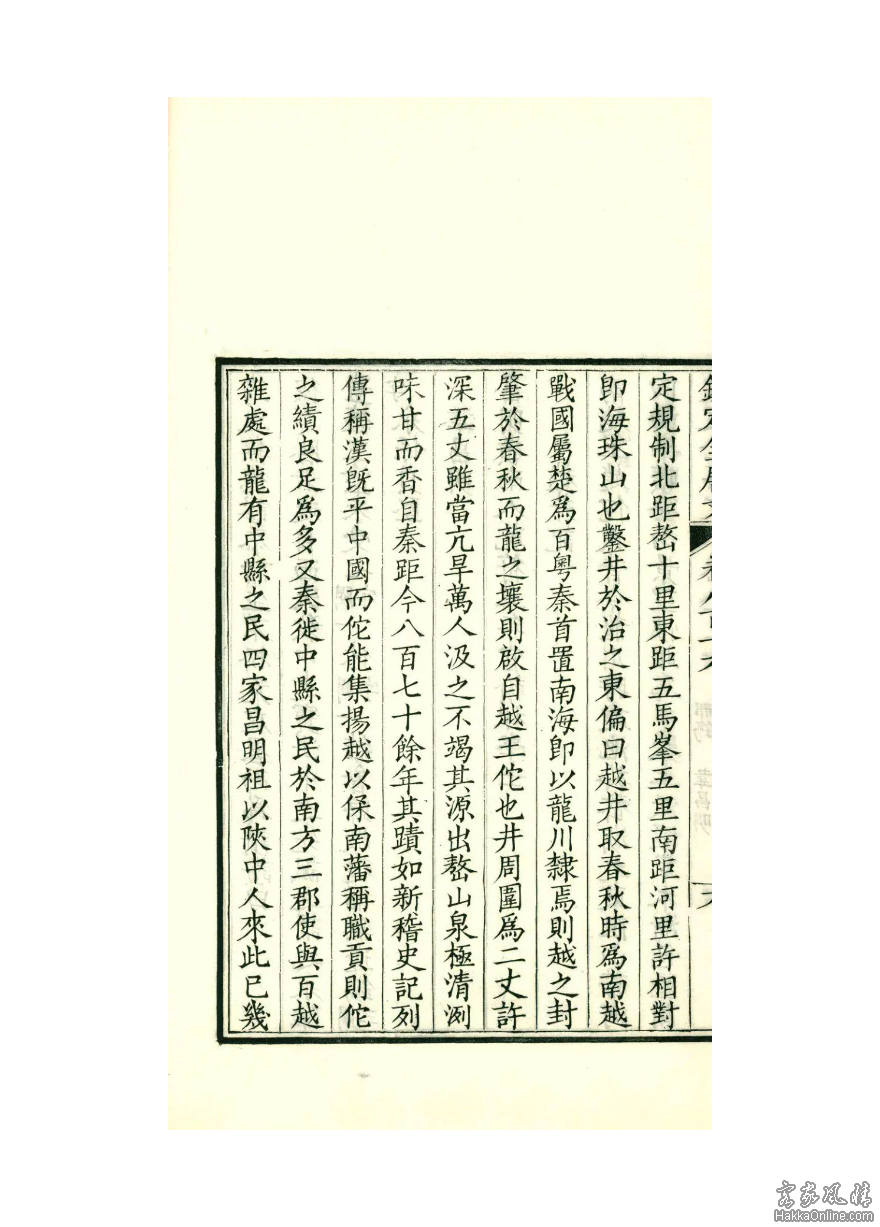 欽定全唐文 卷八百十六 六
定規制北距嶅十里東距五馬峯五里南距河里許相對
即海珠山也鑿井於治之東偏曰越井取春秋時爲南越
戰國屬楚爲百粵秦首置南海即以龍川隸焉則越之封
肇於春秋而龍之壤則啟自越王佗也井周圍爲二丈許
深五丈雖當亢旱萬人汲之不竭其源出嶅山泉極清洌
味甘而香自秦距今八百七十餘年其蹟如新稽史記列
傳稱漢旣平中國而佗能集揚越以保南藩稱職貢則佗
之績良足爲多又秦徙中縣之民於南方三郡使與百越
雜處而龍有中縣之民四家昌明祖以陝中人來此已幾
客家風情
HakkaOnline.com